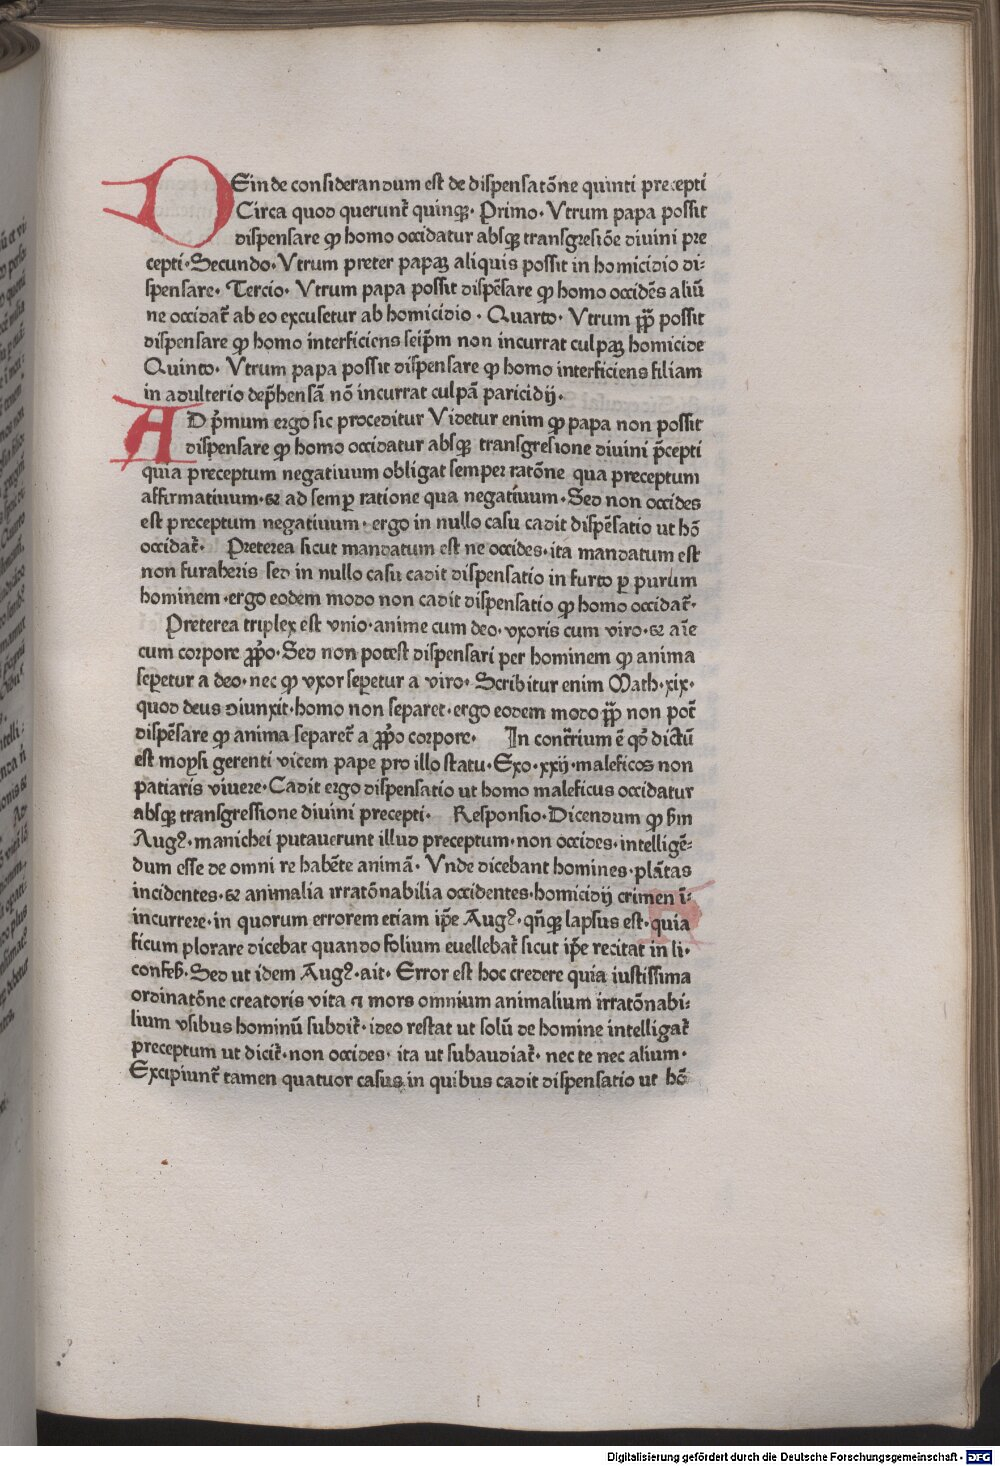 DEinde considerandum est de dispensatōne quinti precepti
Circa quod querunt᷑ quinqꝫ· Primo· Vtrum papa possit
dispensare ꝙ homo occidatur absqꝫ transgresiōe diuini pre
cepti·Secundo· Vtrum preter papaꝫ aliquis possit in homicidio di⸗
spensare· Tercio· Vtrum papa possit dispēsare ꝙ homo occidēs aliū
ne occidat᷑ ab eo excusetur ab homicidio· Quarto· Vtrum p̄p̄ possit
dispensare ꝙ homo interficiens seip̄m non incurrat culpaꝫ homicide
Quinto· Vtrum papa possit dispensare ꝙ homo interficiens filiam
in adulterio dep̄hensā nō incurrat culpā paricidij·
AD p̄mum ergo sic proceditur Videtur enim ꝙ papa non possit
dispensare ꝙ homo occidatur absqꝫ transgresione diuini p̄cepti
quia preceptum negatiuum obligat semper ratōne qua preceptum
affirmatiuum·⁊ ad semꝑ ratione qua negatiuum·Sed non occides
est preceptum negatiuum· ergo in nullo casu cadit dispēsatio ut hō
occidat᷑· Preterea sicut mandatum est ne occides·ita mandatum est
non furaberis sed in nullo casu cadit dispensatio in furto ꝑ purum
hominem·ergo eodem modo non cadit dispensatio ꝙ homo occidat᷑·
Preterea triplex est vnio·anime cum deo·vxoris cum viro·⁊ aīe
cum corpore ꝓp̄o·Sed non potest dispensari per hominem ꝙ anima
seꝑetur a deo·nec ꝙ vxor seꝑetur a viro· Scribitur enim Math·xix·
quod deus diunxit·homo non separet·ergo eodem modo p̄p̄ non pot᷑
dispēsare ꝙ anima separet᷑ a ꝓp̄o corpore· In cont᷑rium ē qd̄ dictū
est moysi gerenti vicem pape pro illo statu·Exo·xxij·maleficos non
patiaris viuere·Cadit ergo dispensatio ut homo maleficus occidatur
absqꝫ transgressione diuini precepti· Responsio·Dicendum ꝙ s̄m
Augꝰ·manichei putauerunt illud preceptum·non occides·intelligē⸗
dum esse de omni re habēte animā· Vnde dicebant homines·plātas
incidentes·⁊ animalia irratōnabilia occidentes·homicidij crimen ī⸗
incurrere·in quorum errorem etiam ip̄e Augꝰ·qn̄qꝫ lapsus est·quia
ficum plorare dicebat quando folium euellebat᷑ sicut ip̄e recitat in li·
confes̄·Sed ut idem Augꝰ·ait· Error est hoc credere quia iustissima
ordinatōne creatoris vita ⁊ mors omnium animalium irratōnabi⸗
lium vsibus hominū subdit᷑·ideo restat ut solū de homine intelligat᷑
preceptum ut dicit᷑·non occides· ita ut subaudiat᷑· nec te nec alium·
Excipiunt᷑ tamen quatuor casus in quibus cadit dispensatio ut hō
Digitalisierung gefördert durch die Deutsche Forschungsgemeinschaft - DFG